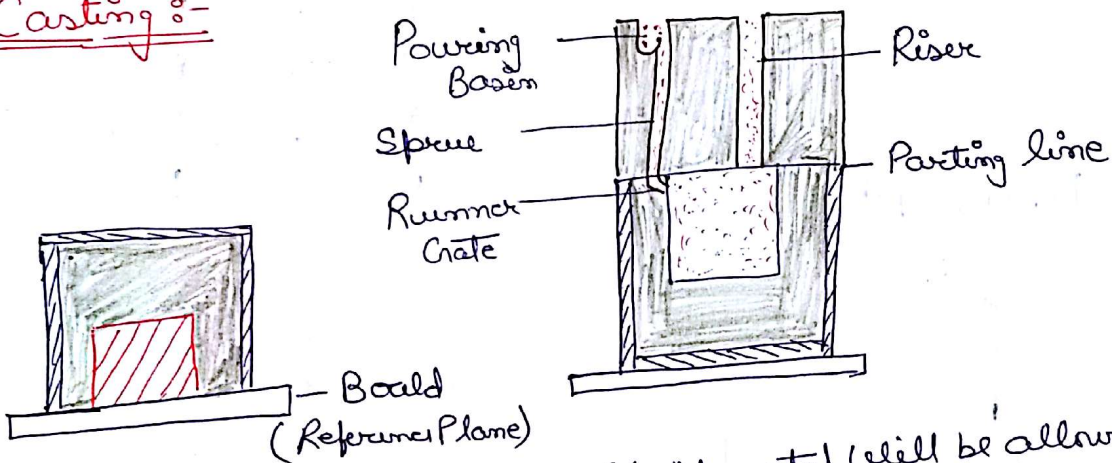 Casting :-
Pouring
Basin
Riser
Sprue
Parting line
Runner
Gate
Boald
(Reference Plane)
will be allow